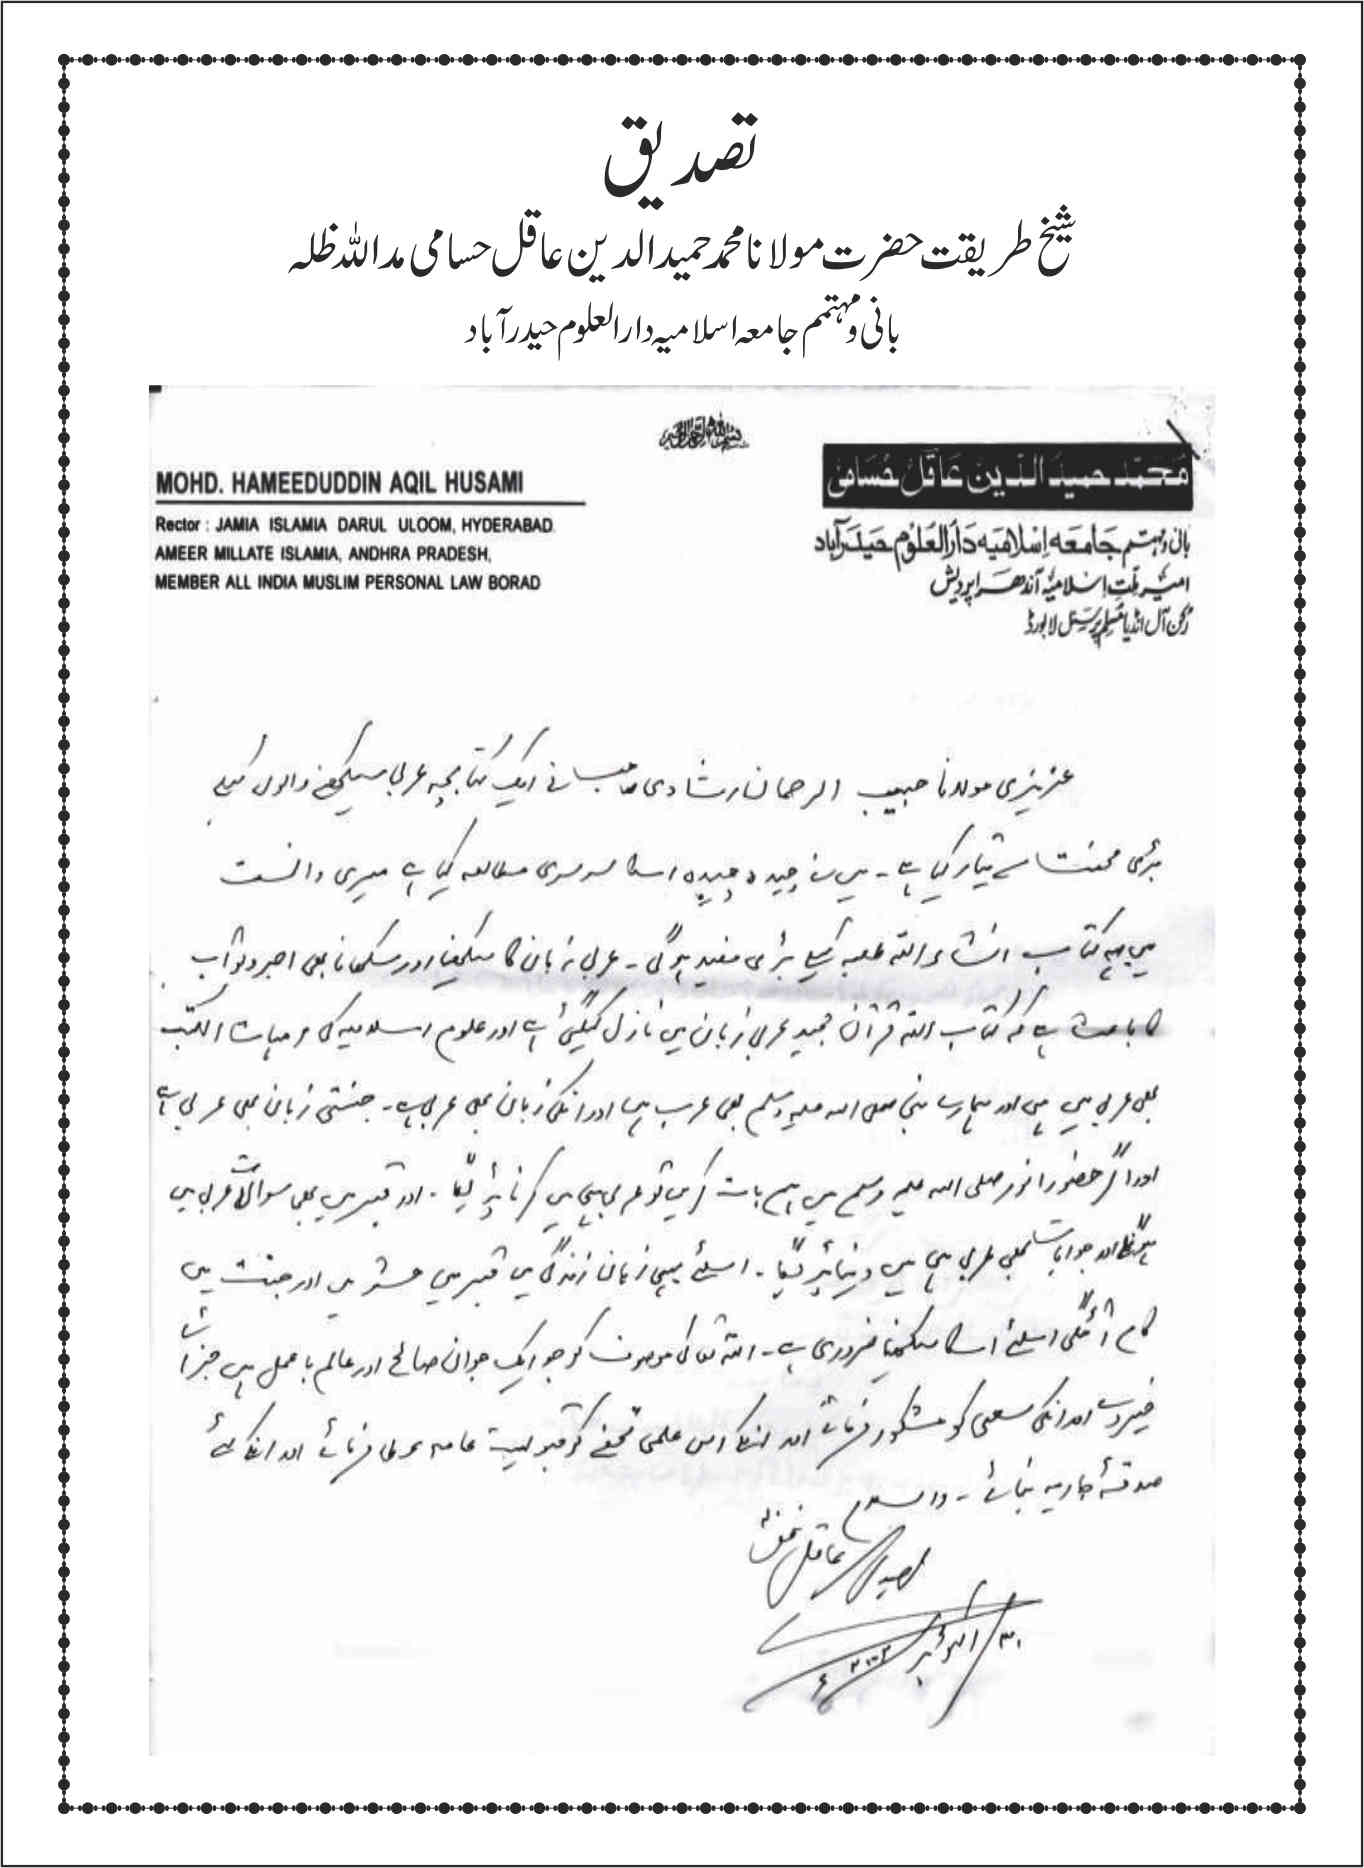 تصدیق
شیخ طریقت حضرت مولانا محمد حمید الدین عاقل حسامی مد اللہ ظلہ
بانی و مہتمم جامعہ اسلامیہ دارالعلوم حیدرآباد
بسم اللہ الرحمن الرحیم
MOHD. HAMEEDUDDIN AQIL HUSAMI
Rector : JAMIA ISLAMIA DARUL ULOOM, HYDERABAD.
AMEER MILLATE ISLAMIA, ANDHRA PRADESH,
MEMBER ALL INDIA MUSLIM PERSONAL LAW BORAD
محمد حمید الدین عاقل حسامی
بانی و مہتمم جامعہ اسلامیہ دارالعلوم حیدرآباد
امیر ملت اسلامیہ آندھرا پردیش
رکن آل انڈیا مسلم پرسنل لا بورڈ
عزیزی مولانا حبیب الرحمان رشادی صاحب نے ایک کتابچہ عربی سیکھنے والوں کیلئے
بڑی محنت سے تیار کیا ہے۔ میں نے چیدہ چیدہ اسکا سرسری مطالعہ کیا ہے میری دانست
میں یہ کتاب انشاء اللہ طلبہ کیلئے بڑی مفید ہوگی۔ عربی زبان کا سیکھنا اور سکھانا بھی اجر و ثواب
کا باعث ہے کہ کتاب اللہ قرآن مجید عربی زبان میں نازل کیگئی ہے اور علوم اسلامیہ کی امہات الکتب
بھی عربی میں ہیں اور ہمارے نبی صلی اللہ علیہ وسلم بھی عرب ہیں اور انکی زبان بھی عربی ہے۔ جنتی زبان بھی عربی ہے
اور اگر حضور انور صلی اللہ علیہ وسلم سے ہم بات کریں تو عربی ہی میں کرنا پڑیگا۔ اور قبر میں بھی سوالات عربی میں
ہونگے اور جوابات بھی عربی ہی میں دینا پڑیگا۔ اسلئے یہی زبان زندگی میں قبر میں حشر میں اور جنت میں
کام آئیگی اسلئے اسکا سیکھنا ضروری ہے۔ اللہ تعالی موصوف کو جو ایک جوان صالح اور عالم باعمل ہیں جزائے
خیر دے اور انکی سعی کو مشکور فرمائے اور انکے اس علمی تحفے کو قبولیت عامہ عطا فرمائے اور انکے لئے
صدقۂ جاریہ بنائے۔ والسلام
عاقل
۳۱ اکتوبر